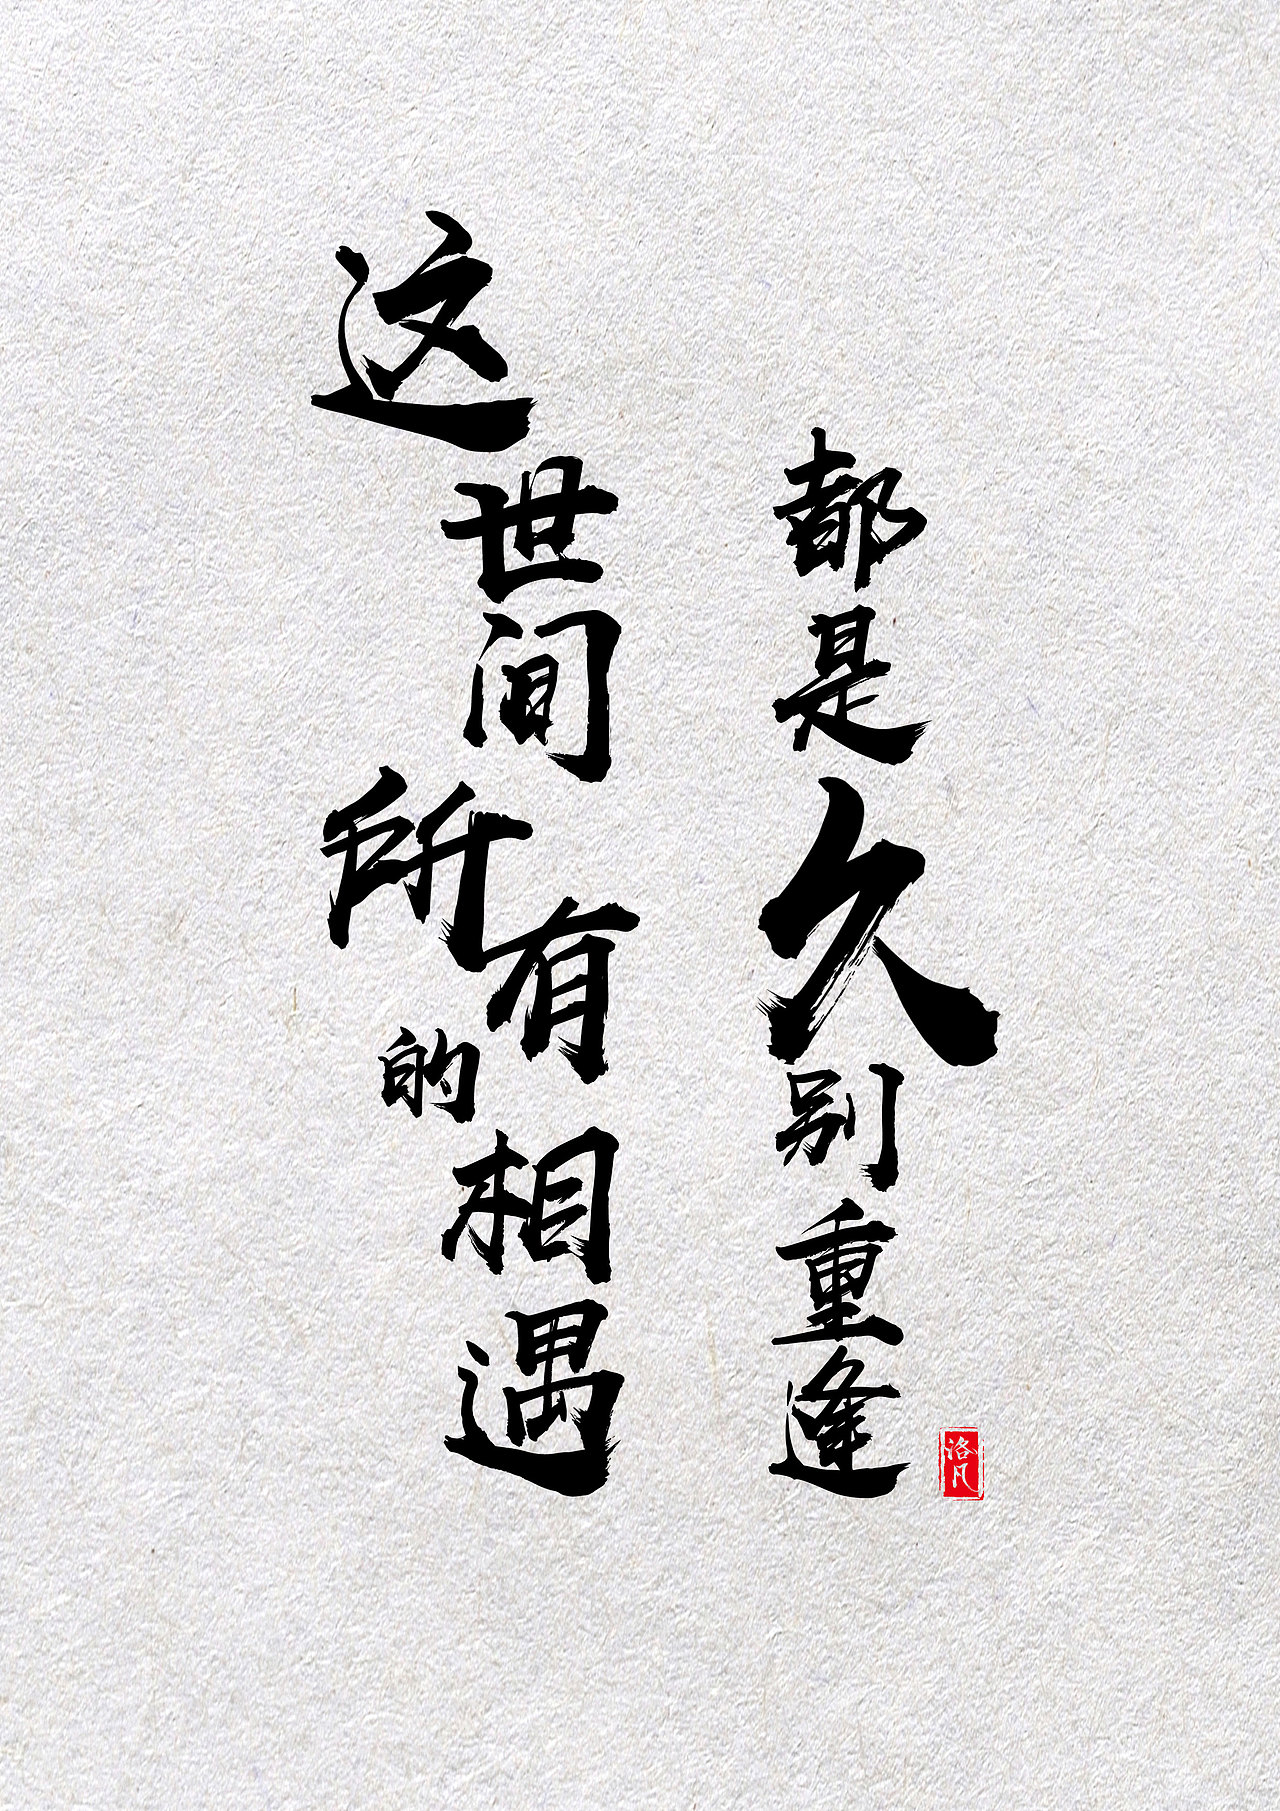 这世间所有的相遇
都是久别重逢
洛凡